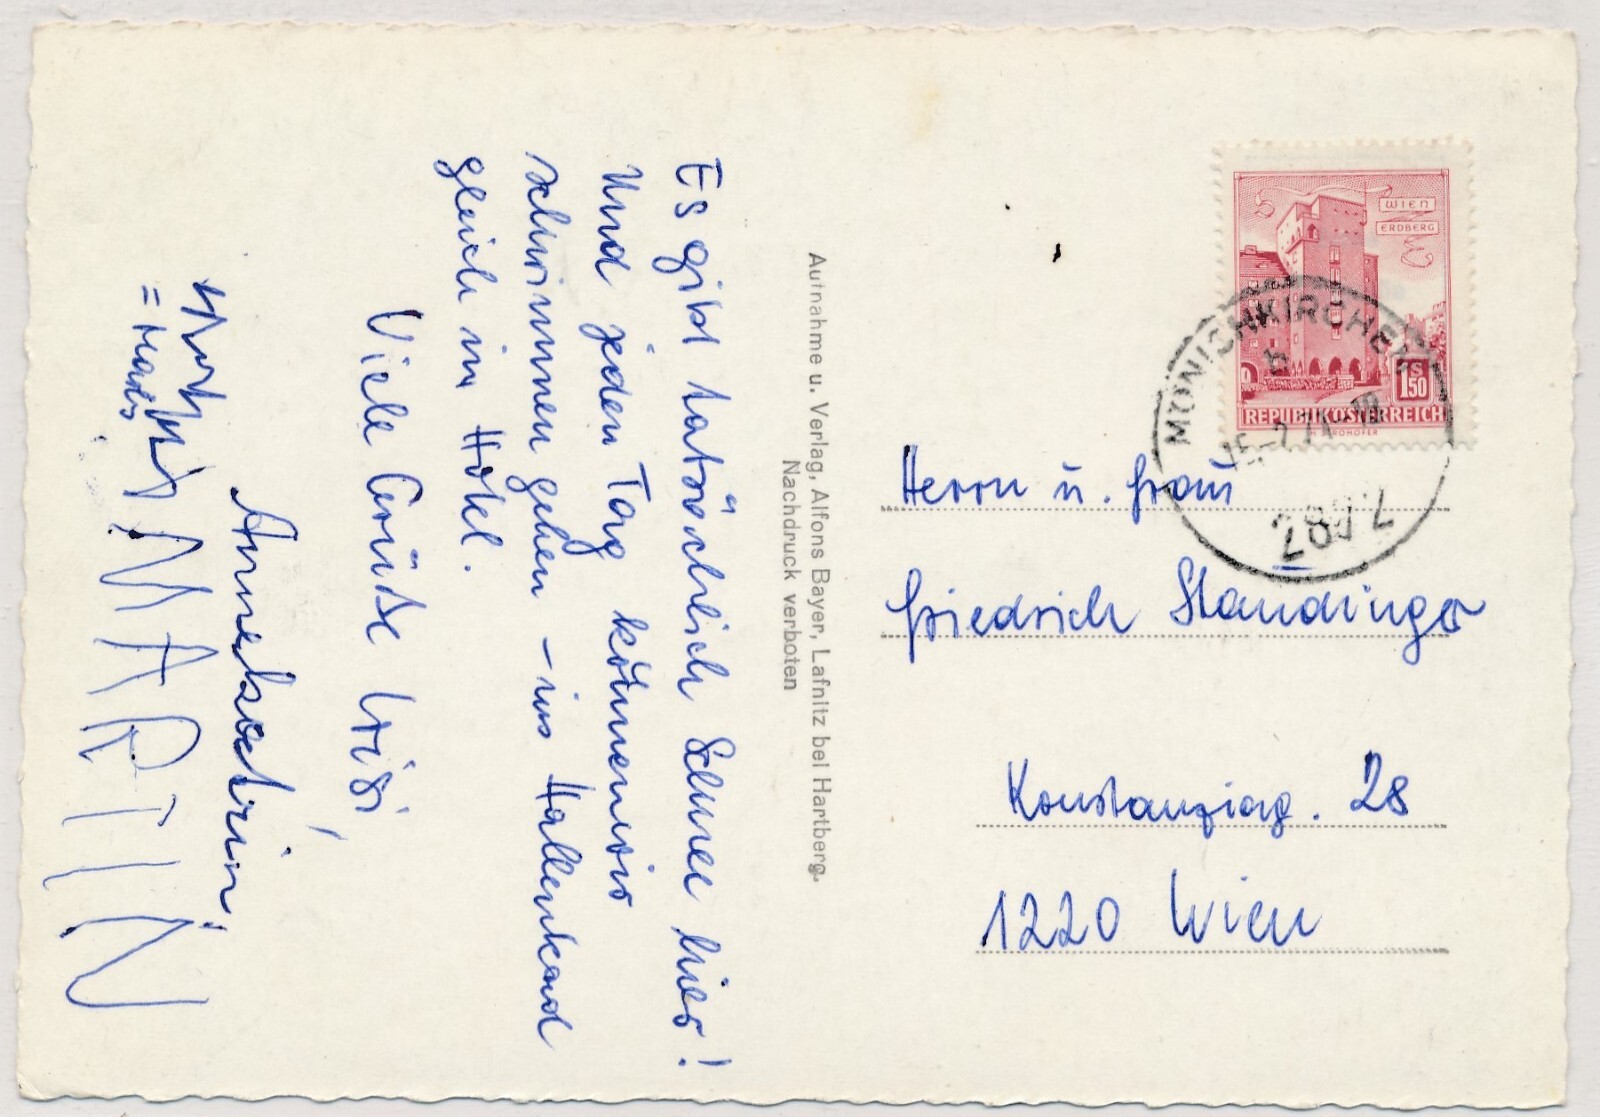 Es gibt tatsächlich Schnee hier!
Und jeden Tag können wir
schwimmen gehen - ins Hallenbad
gleich im Hotel.
Viele Grüße
Annekatrin,
MARTIN
Aufnahme u. Verlag, Alfons Bayer, Lafnitz bei Hartberg.
Nachdruck verboten
WIEN
ERDBERG
S
1.50
REPUBLIK ÖSTERREICH
MÖNICHKIRCHEN
b
15.-2.71-18
2872
Herrn u. Frau
Friedrich Staudinger
Konstanziag. 28
1220 Wien